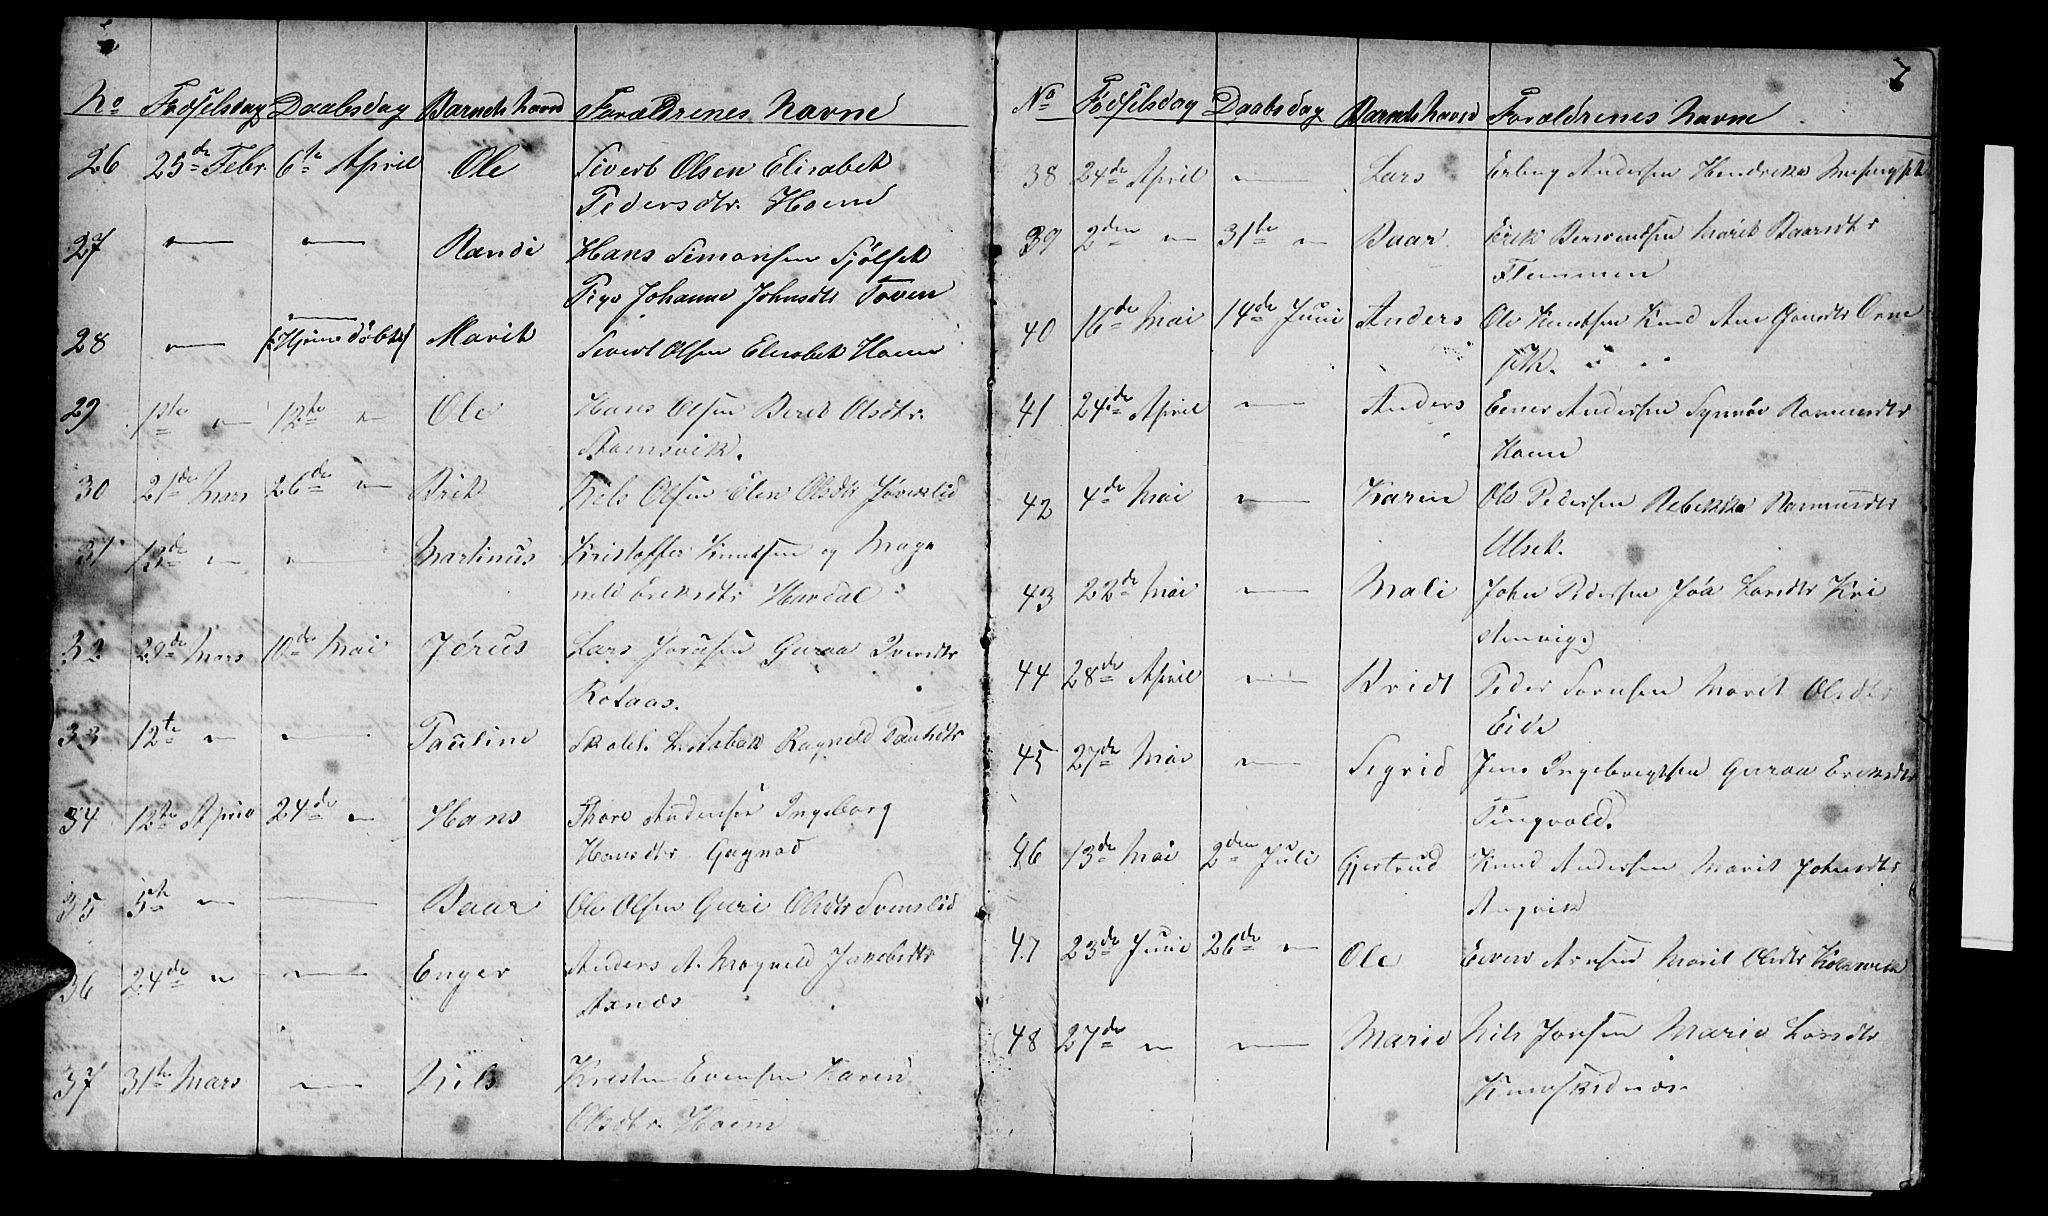 No Fødselsdag Daabsdag Barnets Navn Forældrenes Navne
26 25de Febr. 6te April Ole Sivert Olsen Elisabet
Pedersdtr. Hoem
27 — — Randi Hans Simonsen Sjølset
Pige Johanne Johnsdtr Toven
28 — (Hjemedøbt) Marit Sivert Olsen Elisabet Hoem
29 1ste — 12te — Ole Hans Olsen Berit Olsdtr.
Ramsvik.
30 21de Mars 26de — Brit Nels Olsen Elen Olsdtr
31 13de — — Martinus Kristoffer Knutsen og Mag
nild Eriksdtr Handal
32 28de Mars 10de Mai Jørus Lars Jørusen Guroa
Rotaas.
33 12te — — Pauline Skolel. Ragnild Paulsdtr
34 12te April 24de — Hans Thore Andersen Ingeborg
Hansdtr Gagnad
35 5te — — Baar Ole Olsen Guri Olsdtr Svenslid
36 24de — — Enger Anders A. Magnild Jakobsdtr
Axnes
37 31te Mars — Nils Kresten Evensen Karen
Olsdtr. Hoem
7
No Fødselsdag Daabsdag Barnets Navn Forældrenes Navne
38 24de April — Lars Erling Andersen Hendrikka
39 2den — 31te — Baar Erik Berendtsen Marit Baarsdtr
Flemmen
40 16de Mai 14de Juni Anders Ole Knutsen Ane
41 24de April — Anders Ener Andersen Synnøv Rasmusdtr
Hoem
42 4de Mai — Karen Ole Pedersen Rebekka Rasmusdtr
Ulset.
43 22de Mai — Mali John Pedersen Larsdtr Kri
stenvig.
44 28de April — Bridt Peder Sørensen Marit Olsdtr
Eide
45 27de Mai — Sigrid Jens Ingebregtsen Guroa Eriksdtr
Tingvold.
46 13de Mai 2den Juli Gjertrud Knud Andersen Marit Johnsdtr
Angvik
47 23de Juni 26de — Ole Marit Olsdtr
48 27de — — Marie Nils Jonsen Marie Larsdtr